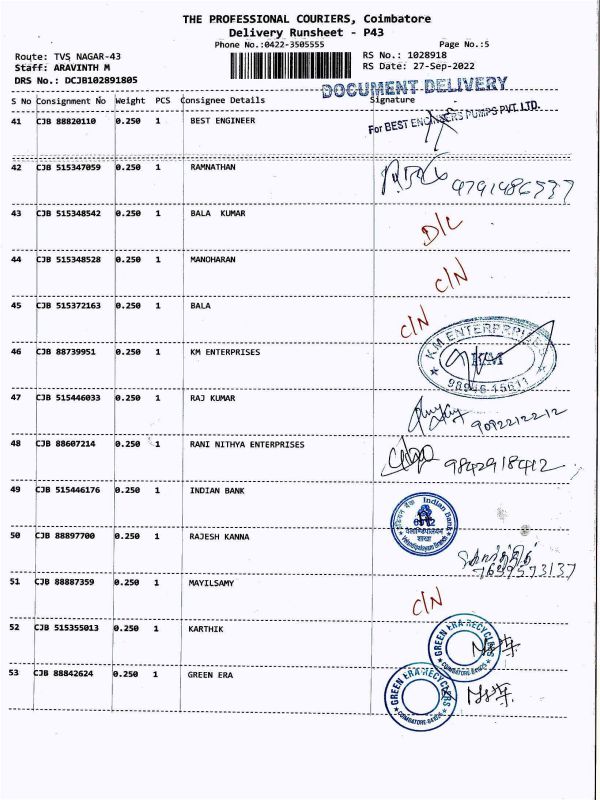 THE PROFESSIONAL COURIERS, Coimbatore
Delivery Runsheet - P43
Phone No.:0422-3505555 Page No.:5
Route: TVS NAGAR-43 RS No.: 1028918
Staff: ARAVINTH M RS Date: 27-Sep-2022
DRS No.: DCJB102891805
DOCUMENT DELIVERY
S No Consignment No Weight PCS Consignee Details Signature
41 CJB 88820110 0.250 1 BEST ENGINEER
For BEST ENGINEERS PUMPS PVT. LTD.
42 CJB 515347059 0.250 1 RAMNATHAN
4791486537
43 CJB 515348542 0.250 1 BALA KUMAR
D/L
44 CJB 515348528 0.250 1 MANOHARAN
C/N
45 CJB 515372163 0.250 1 BALA
C/N
46 CJB 88739951 0.250 1 KM ENTERPRISES
KM ENTERPRISES
KM
98946-15611
47 CJB 515446033 0.250 1 RAJ KUMAR
9092212212
48 CJB 88607214 0.250 1 RANI NITHYA ENTERPRISES
9842918412
49 CJB 515446176 0.250 1 INDIAN BANK
Indian Bank
50 CJB 88897700 0.250 1 RAJESH KANNA
51 CJB 88887359 0.250 1 MAYILSAMY
C/N
52 CJB 515355013 0.250 1 KARTHIK
GREEN ERA RECYCLERS
COIMBATORE
53 CJB 88842624 0.250 1 GREEN ERA
GREEN ERA RECYCLERS
COIMBATORE